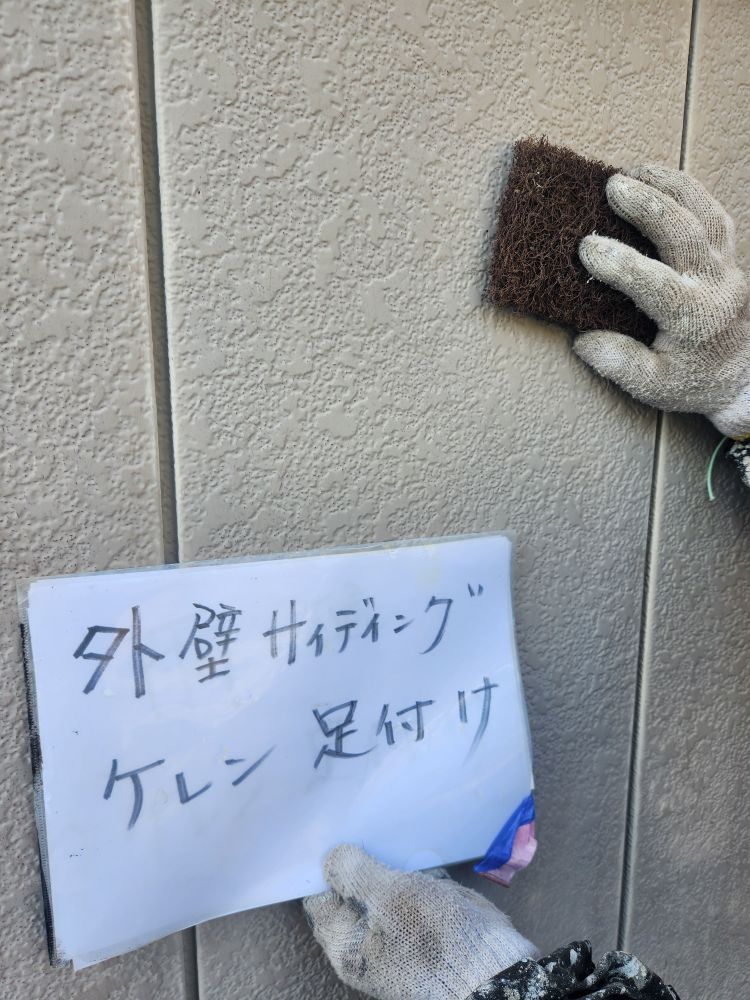 外壁サイディング
ケレン 足付け